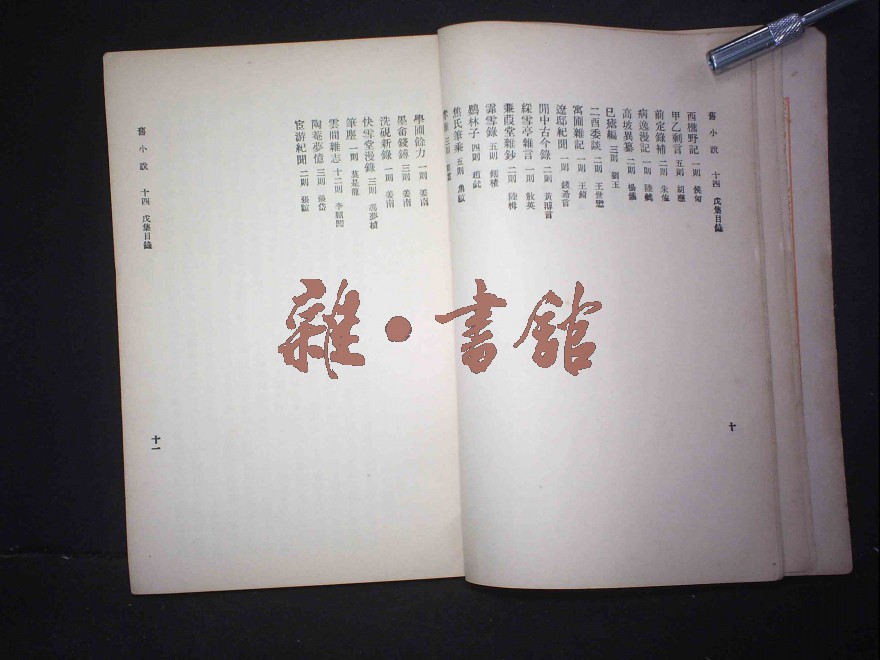 舊小說 十四 戊集目錄
西樵野記 一則 侯甸
甲乙剩言 五則 胡應
前定錄補 二則 朱佐
病逸漫記 一則 陸釴
高坡異纂 二則 楊儀
已瘧編 三則 劉玉
二酉委談 二則 王世懋
寓圃雜記 一則 王錡
遼邸紀聞 一則 錢希言
閒中古今錄 二則 黃溥言
綵雪亭雜言 一則 敖英
蒹葭堂雜鈔 二則 陸楫
霏雪錄 五則 鎦績
鷃林子 四則 趙釴
焦氏筆乘 五則 焦竑
三則
十
學圃餘力 一則 姜南
墨畬錢鎛 三則 姜南
洗硯新錄 一則 姜南
快雪堂漫錄 三則 馮夢禎
筆麈 一則 莫是龍
雲間雜志 十二則 李紹聞
陶菴夢憶 三則 張岱
宦游紀聞 二則 張誼
舊小說 十四 戊集目錄
十一
雜·書館